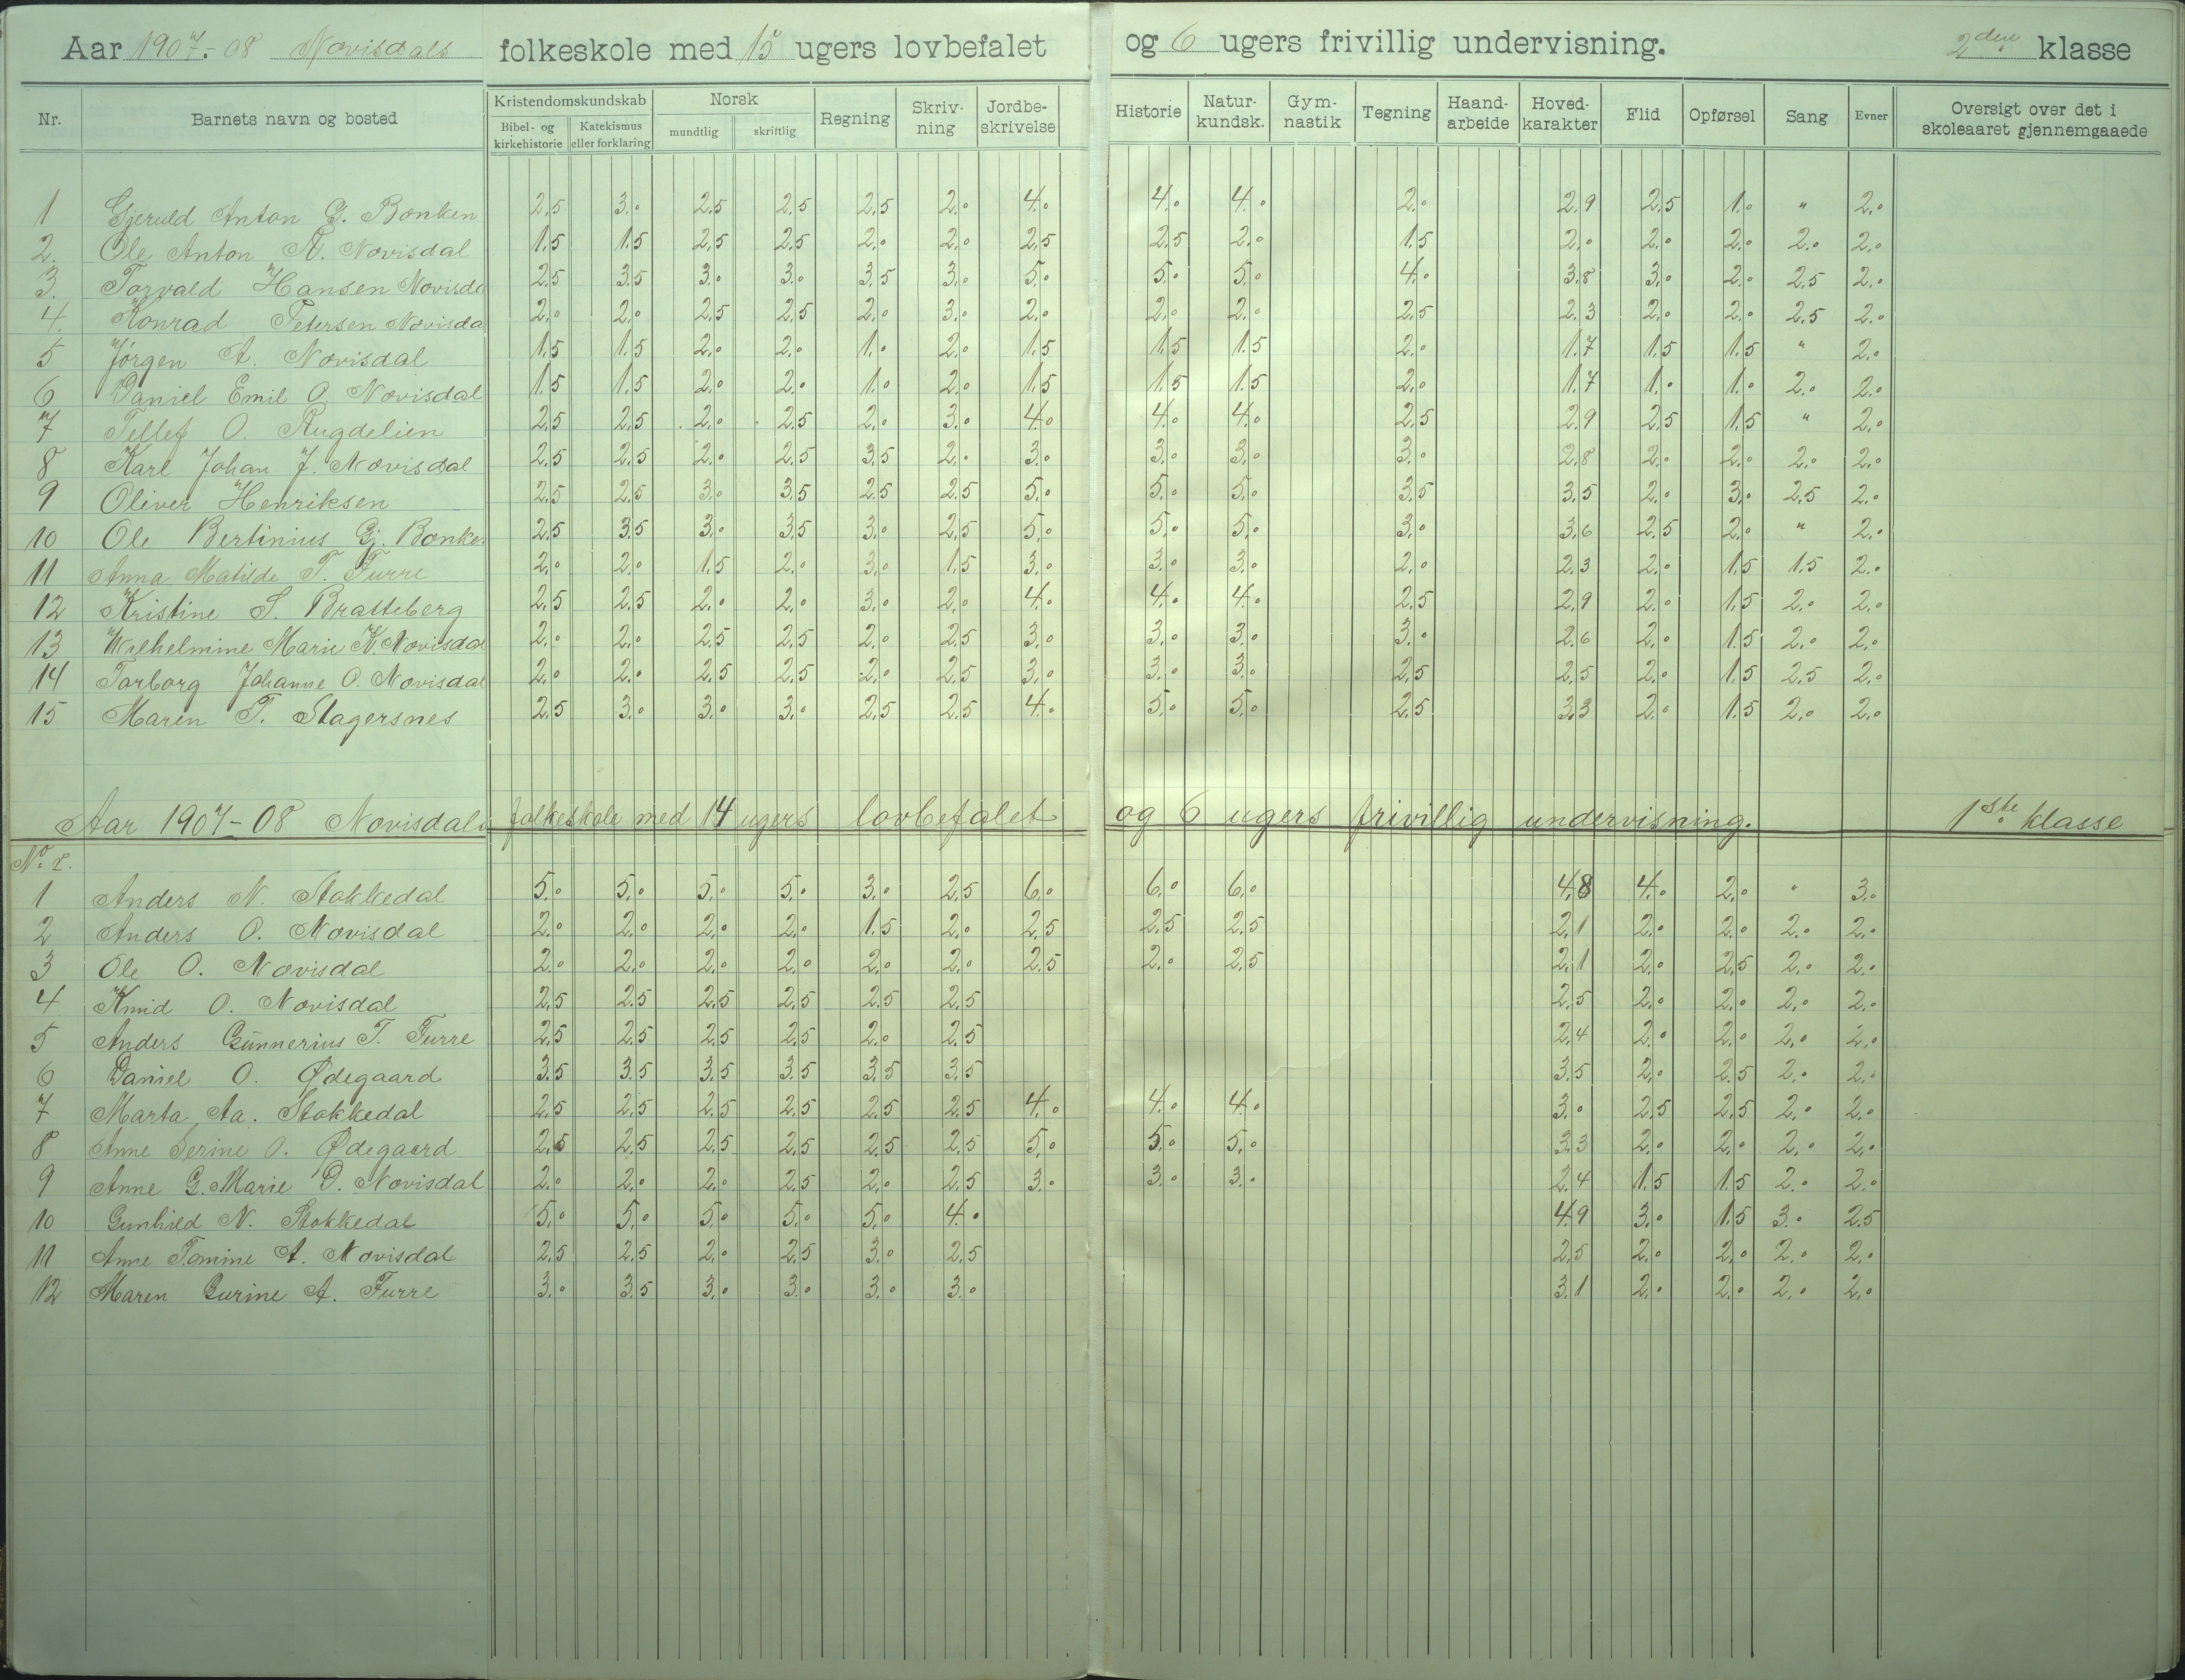 Aar 1907-08 Novisdals folkeskole med 15 ugers lovbefalet og 6 ugers frivillig undervisning. 2den klasse
Nr. Barnets navn og bosted Kristendomskundskab Bibel- og kirkehistorie Katekismus eller forklaring Norsk mundtlig skriftlig Regning Skriv-ning Jordbe-skrivelse Historie Natur-kundsk. Gym-nastik Tegning Haand-arbeide Hoved-karakter Flid Opførsel Sang Evner Oversigt over det i skoleaaret gjennemgaaede
1 Gjeruld Anton G. Bonken 2,5 3,0 2,5 2,5 2,5 2,0 4,0 4,0 4,0 2,0 2,9 2,5 1,0 " 2,0
2. Ole Anton A. Novisdal 1,5 1,5 2,5 2,5 2,0 2,0 2,5 2,5 2,0 1,5 2,0 2,0 2,0 2,0 2,0
3. Torvald Hansen Novisda 2,5 3,5 3,0 3,0 3,5 3,0 5,0 5,0 5,0 4,0 3,8 3,0 2,0 2,5 2,0
4. Konrad Petersen Novisda 2,0 2,0 2,5 2,5 2,0 3,0 2,0 2,0 2,0 2,5 2,3 2,0 2,0 2,5 2,0
5 Jørgen A. Novisdal 1,5 1,5 2,0 2,0 1,0 2,0 1,5 1,5 1,5 2,0 1,7 1,5 1,5 " 2,0
6 Daniel Emil O. Novisdal 1,5 1,5 2,0 2,0 1,0 2,0 1,5 1,5 1,5 2,0 1,7 1,0 1,0 2,0 2,0
7 Tellef O. Rugdelien 2,5 2,5 2,0 2,5 2,0 3,0 4,0 4,0 4,0 2,5 2,9 2,5 1,5 " 2,0
8 Karl Johan J. Novisdal 2,5 2,5 2,0 2,5 3,5 2,0 3,0 3,0 3,0 3,0 2,8 2,0 2,0 2,0 2,0
9 Oliver Henriksen 2,5 2,5 3,0 3,5 2,5 2,5 5,0 5,0 5,0 3,5 3,5 2,0 3,0 2,5 2,0
10 Ole Bertinius Gj. Bonke. 2,5 3,5 3,0 3,5 3,0 2,5 5,0 5,0 5,0 3,0 3,6 2,5 2,0 " 2,0
11 Anna Matilde T. Furre 2,0 2,0 1,5 2,0 3,0 1,5 3,0 3,0 3,0 2,0 2,3 2,0 1,5 1,5 2,0
12 Kristine S. Bratteberg 2,5 2,5 2,0 2,0 3,0 2,0 4,0 4,0 4,0 2,5 2,9 2,0 1,5 2,0 2,0
13 Wilhelmine Marie K. Novisdal 2,0 2,0 2,5 2,5 2,0 2,5 3,0 3,0 3,0 3,0 2,6 2,0 1,5 2,0 2,0
14 Torborg Johanne O. Novisdal 2,0 2,0 2,5 2,5 2,0 2,5 3,0 3,0 3,0 2,5 2,5 2,0 1,5 2,5 2,0
15 Maren T. Slagersnes 2,5 3,0 3,0 3,0 2,5 2,5 4,0 5,0 5,0 2,5 3,3 2,0 1,5 2,0 2,0
Aar 1907-08 Novisdals folkeskole med 14 ugers lovbefalet og 6 ugers frivillig undervisning. 1ste klasse
No r.
1 Anders N. Stokkedal 5,0 5,0 5,0 5,0 3,0 2,5 6,0 6,0 6,0 4,8 4,0 2,0 " 3,0
2 Anders O. Novisdal 2,0 2,0 2,0 2,0 1,5 2,0 2,5 2,5 2,5 2,1 2,0 2,0 2,0 2,0
3 Ole O. Novisdal 2,0 2,0 2,0 2,0 2,0 2,0 2,5 2,0 2,5 2,1 2,0 2,5 2,0 2,0
4 Knud O. Novisdal 2,5 2,5 2,5 2,5 2,5 2,5 2,5 2,0 2,0 2,0 2,0
5 Anders Gunnerius T. Furre 2,5 2,5 2,5 2,5 2,0 2,5 2,4 2,0 2,0 2,0 2,0
6 Daniel O. Ødegaard 3,5 3,5 3,5 3,5 3,5 3,5 3,5 2,0 2,5 2,0 2,0
7 Marta Aa. Stokkedal 2,5 2,5 2,5 2,5 2,5 2,5 4,0 4,0 4,0 3,0 2,5 2,5 2,0 2,0
8 Anne Serine O. Ødegaard 2,5 2,5 2,5 2,5 2,5 2,5 5,0 5,0 5,0 3,3 2,0 2,0 2,0 2,0
9 Anne G. Marie D. Novisdal 2,0 2,0 2,0 2,5 2,0 2,5 3,0 3,0 3,0 2,4 1,5 1,5 2,0 2,0
10 Gunhild N. Stokkedal 5,0 5,0 5,0 5,0 5,0 4,0 4,9 3,0 1,5 3,0 2,5
11 Anne Tomine A. Novisdal 2,5 2,5 2,0 2,5 3,0 2,5 2,5 2,0 2,0 2,0 2,0
12 Maren Gurine A. Furre 3,0 3,5 3,0 3,0 3,0 3,0 3,1 2,0 2,0 2,0 2,0